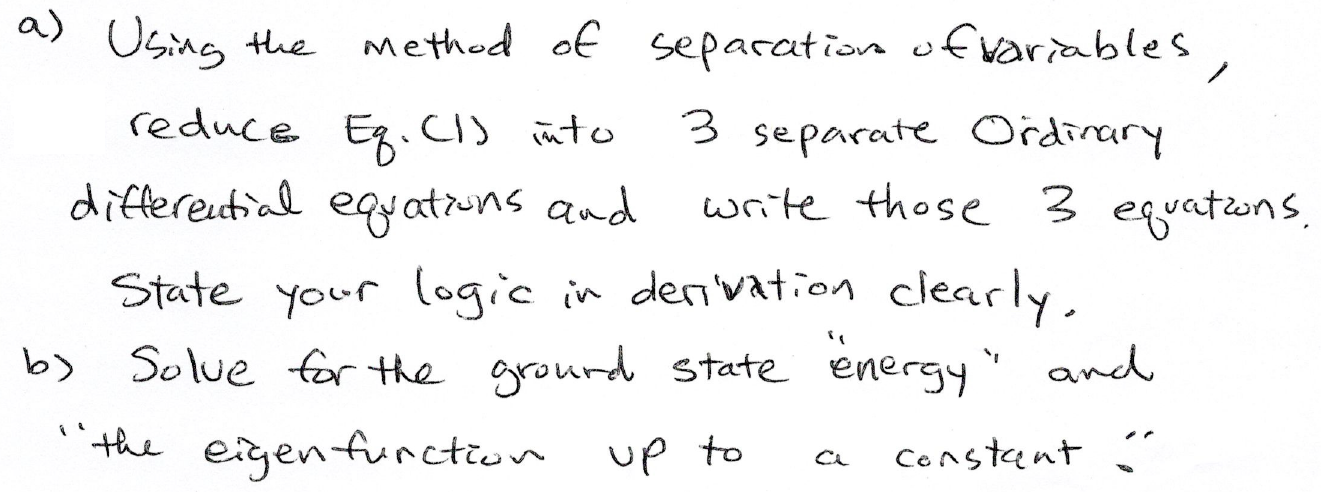 a) Using the method of separation of variables,
reduce Eq. (1) into 3 separate Ordinary
differential equations and write those 3 equations.
State your logic in derivation clearly.
b) Solve for the ground state "energy" and
"the eigenfunction up to a constant."